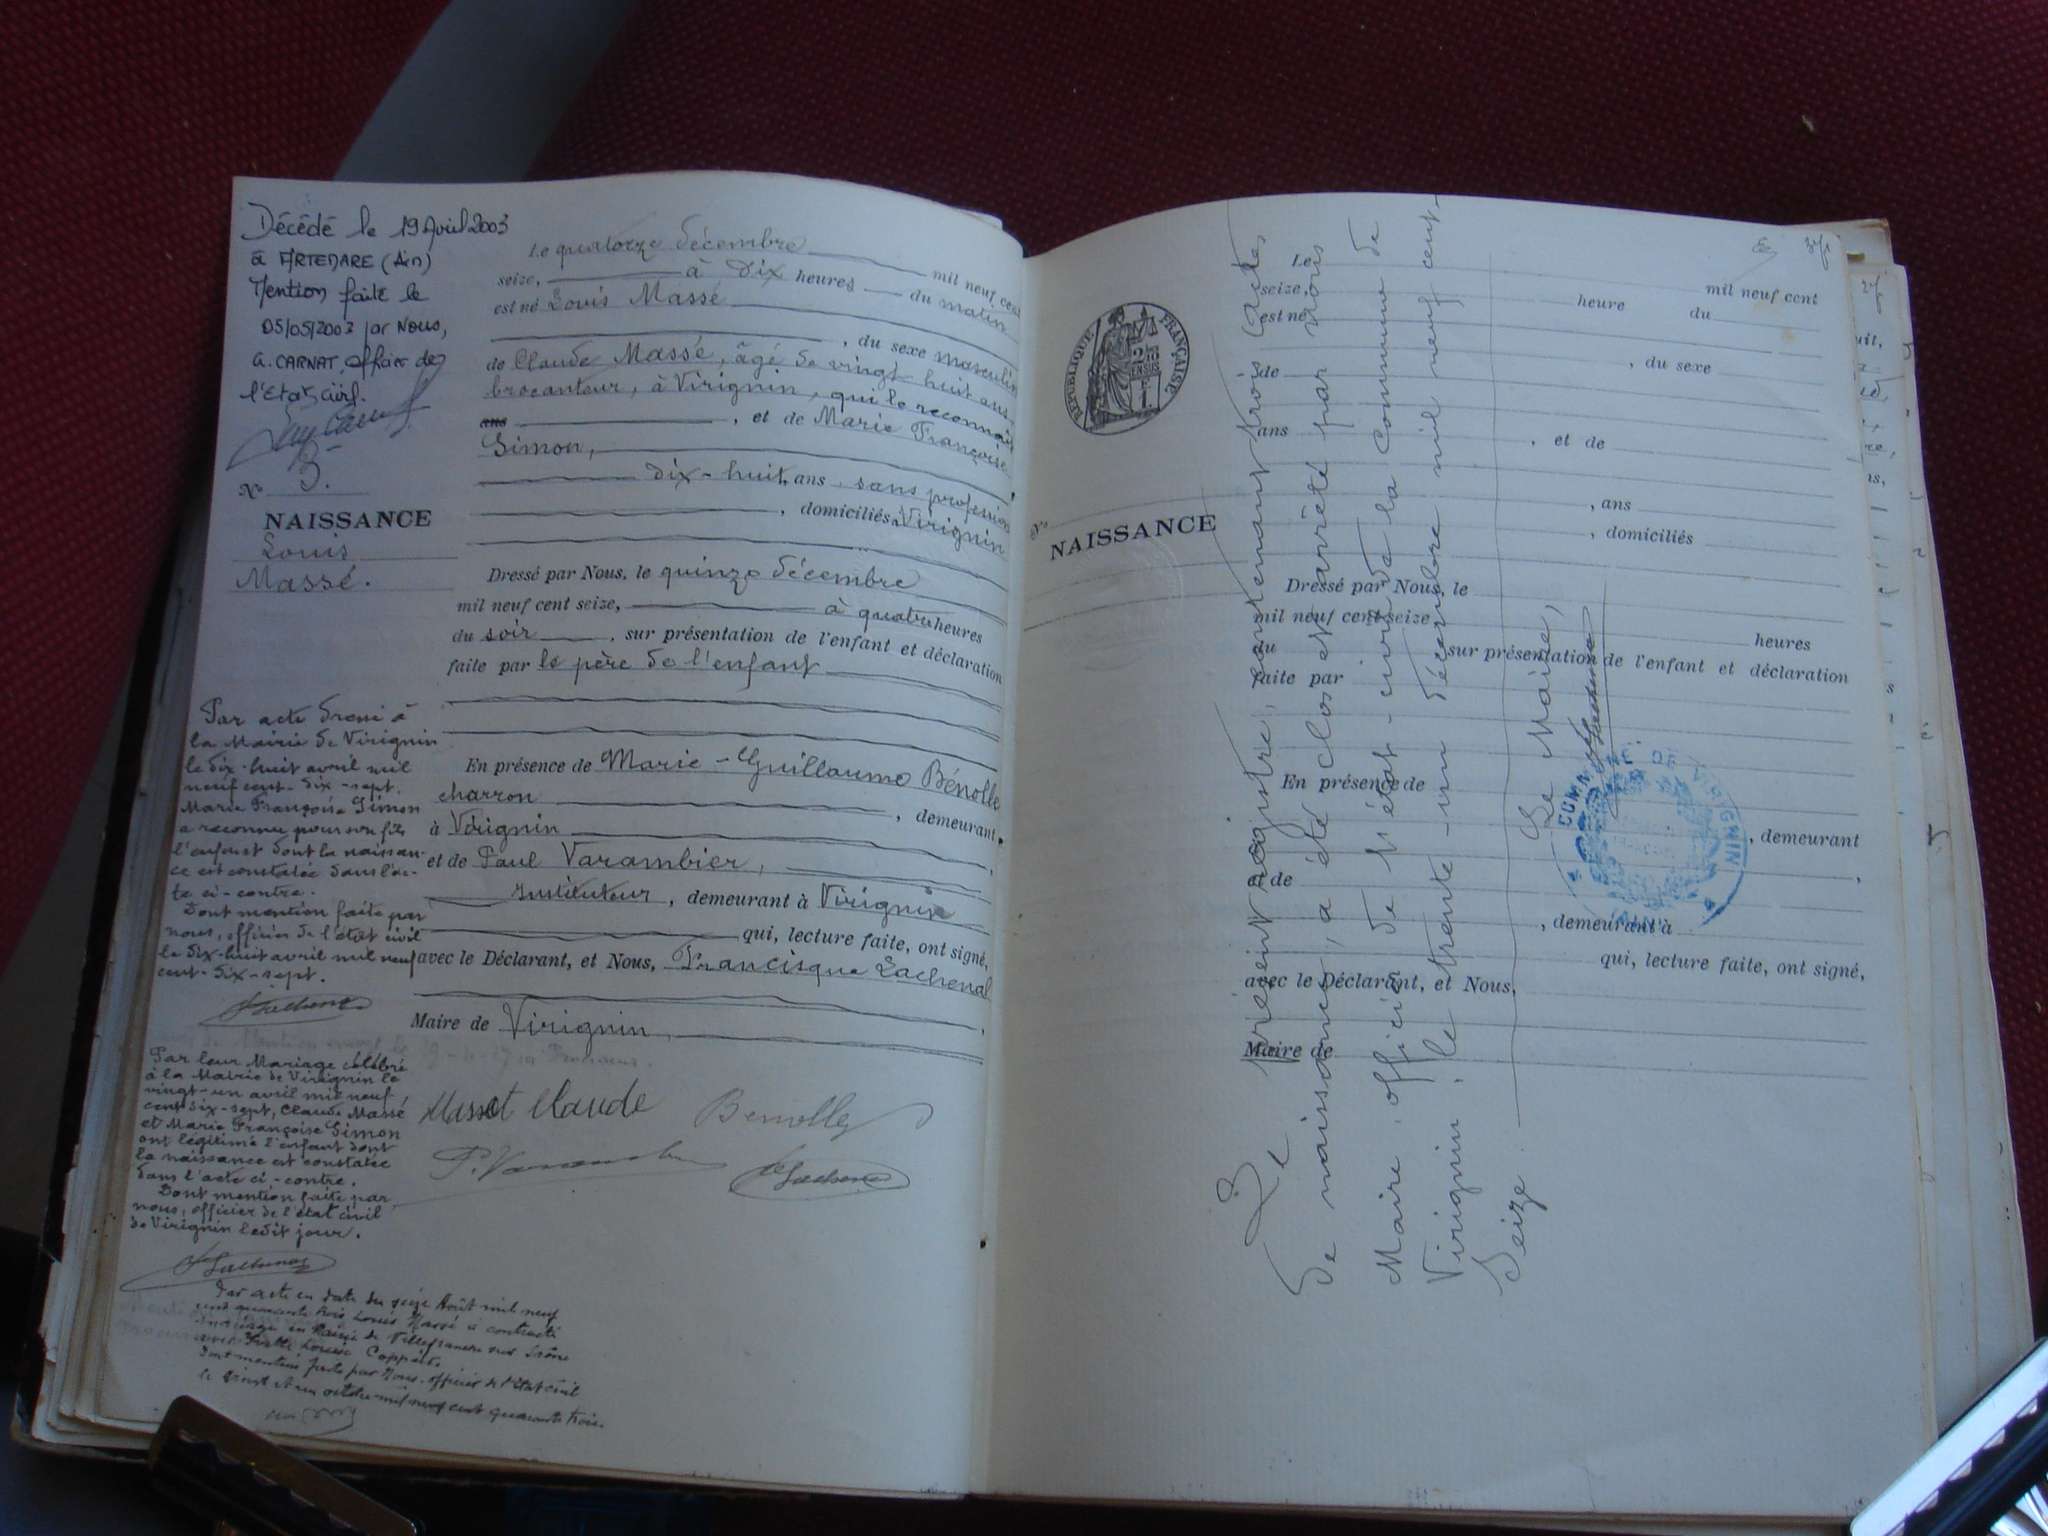 Décédé le 19 Avril 2003
à ARTEMARE (Ain)
Mention faite le
05/05/2003 par Nous,
G. CARNAT, officier de
l'Etat civil.
N° 3.
NAISSANCE
Louis
Massé.
Par acte dressé à
la Mairie de Virignin
le dix-huit avril mil
neuf cent-dix-sept.
Marie Françoise Simon
a reconnu pour son fils
l'enfant dont la naissan-
ce est constatée dans l'ac-
te ci-contre.
Dont mention faite par
nous, officier de l'état civil
le dix-huit avril mil neuf
cent-dix-sept.
F Lachenal
Par leur Mariage célébré
à la Mairie de Virignin le
vingt-un avril mil neuf
cent dix-sept, Claude Massé
et Marie Françoise Simon
ont légitimé l'enfant dont
la naissance est constatée
dans l'acte ci-contre.
Dont mention faite par
nous, officier de l'état civil
de Virignin ledit jour.
F Lachenal
Par acte en date du seize Août mil neuf
cent quarante trois Louis Massé a contracté
mariage en Mairie de Villefranche sur Saône
avec Louise
Dont mention faite par Nous, officier de l'Etat civil
le vingt et un octobre mil neuf cent quarante trois.
Le quatorze décembre mil neuf cent
seize, à Dix heures du matin
est né Louis Massé
, du sexe masculin
de Claude Massé, âgé de vingt-huit ans,
brocanteur, à Virignin, qui le reconnait
ans , et de Marie Françoise
Simon,
dix-huit, ans sans profession
, domiciliés à Virignin
Dressé par Nous, le quinze décembre
mil neuf cent seize, à quatre heures
du soir , sur présentation de l'enfant et déclaration
faite par le père de l'enfant
En présence de Marie-Guillaume Bénolle
charron , demeurant
à Virignin
et de Paul Varambier,
Instituteur , demeurant à Virignin
qui, lecture faite, ont signé,
avec le Déclarant, et Nous, Francisque Lachenal
Maire de Virignin
Masset Claude Benolle
P. Varambier F Lachenal
RÉPUBLIQUE FRANÇAISE
N°
NAISSANCE
Le mil neuf cent
seize, heure du
est né
, du sexe
de
ans , et de
, ans
, domiciliés
Dressé par Nous, le
mil neuf cent seize heures
du sur présentation de l'enfant et déclaration
faite par
En présence de
, demeurant
et de ,
, demeurant à
qui, lecture faite, ont signé,
avec le Déclarant, et Nous,
Maire de
Le présent registre, contenant trois actes
de naissance, a été clos et arrêté par nous
Maire, officier de l'état-civil de la Commune de
Virignin, le trente-un décembre mil neuf cent-
Seize
Le Maire,
F Lachenal
COMMUNE DE VIRIGNIN
(AIN)